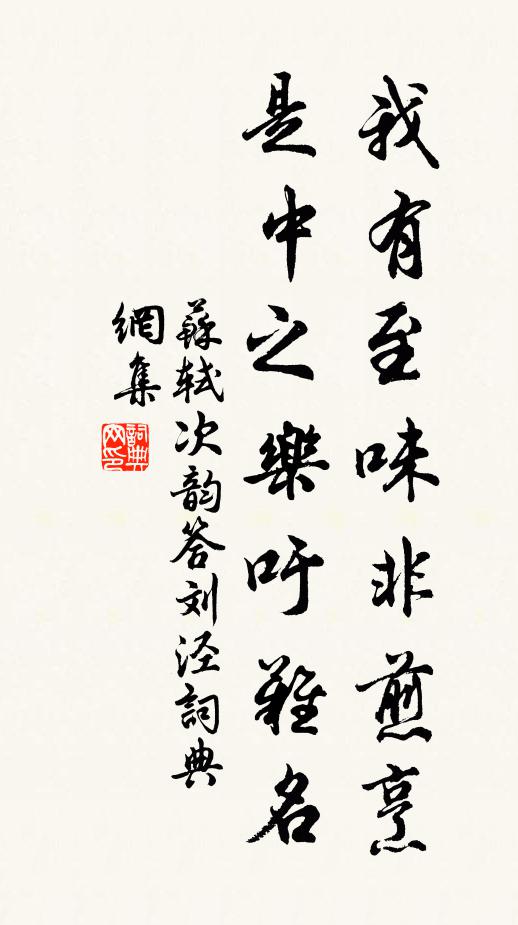 我有至味非煎烹
是中之樂吁難名
蘇軾次韵答刘泾詞典
網集
詞典网印